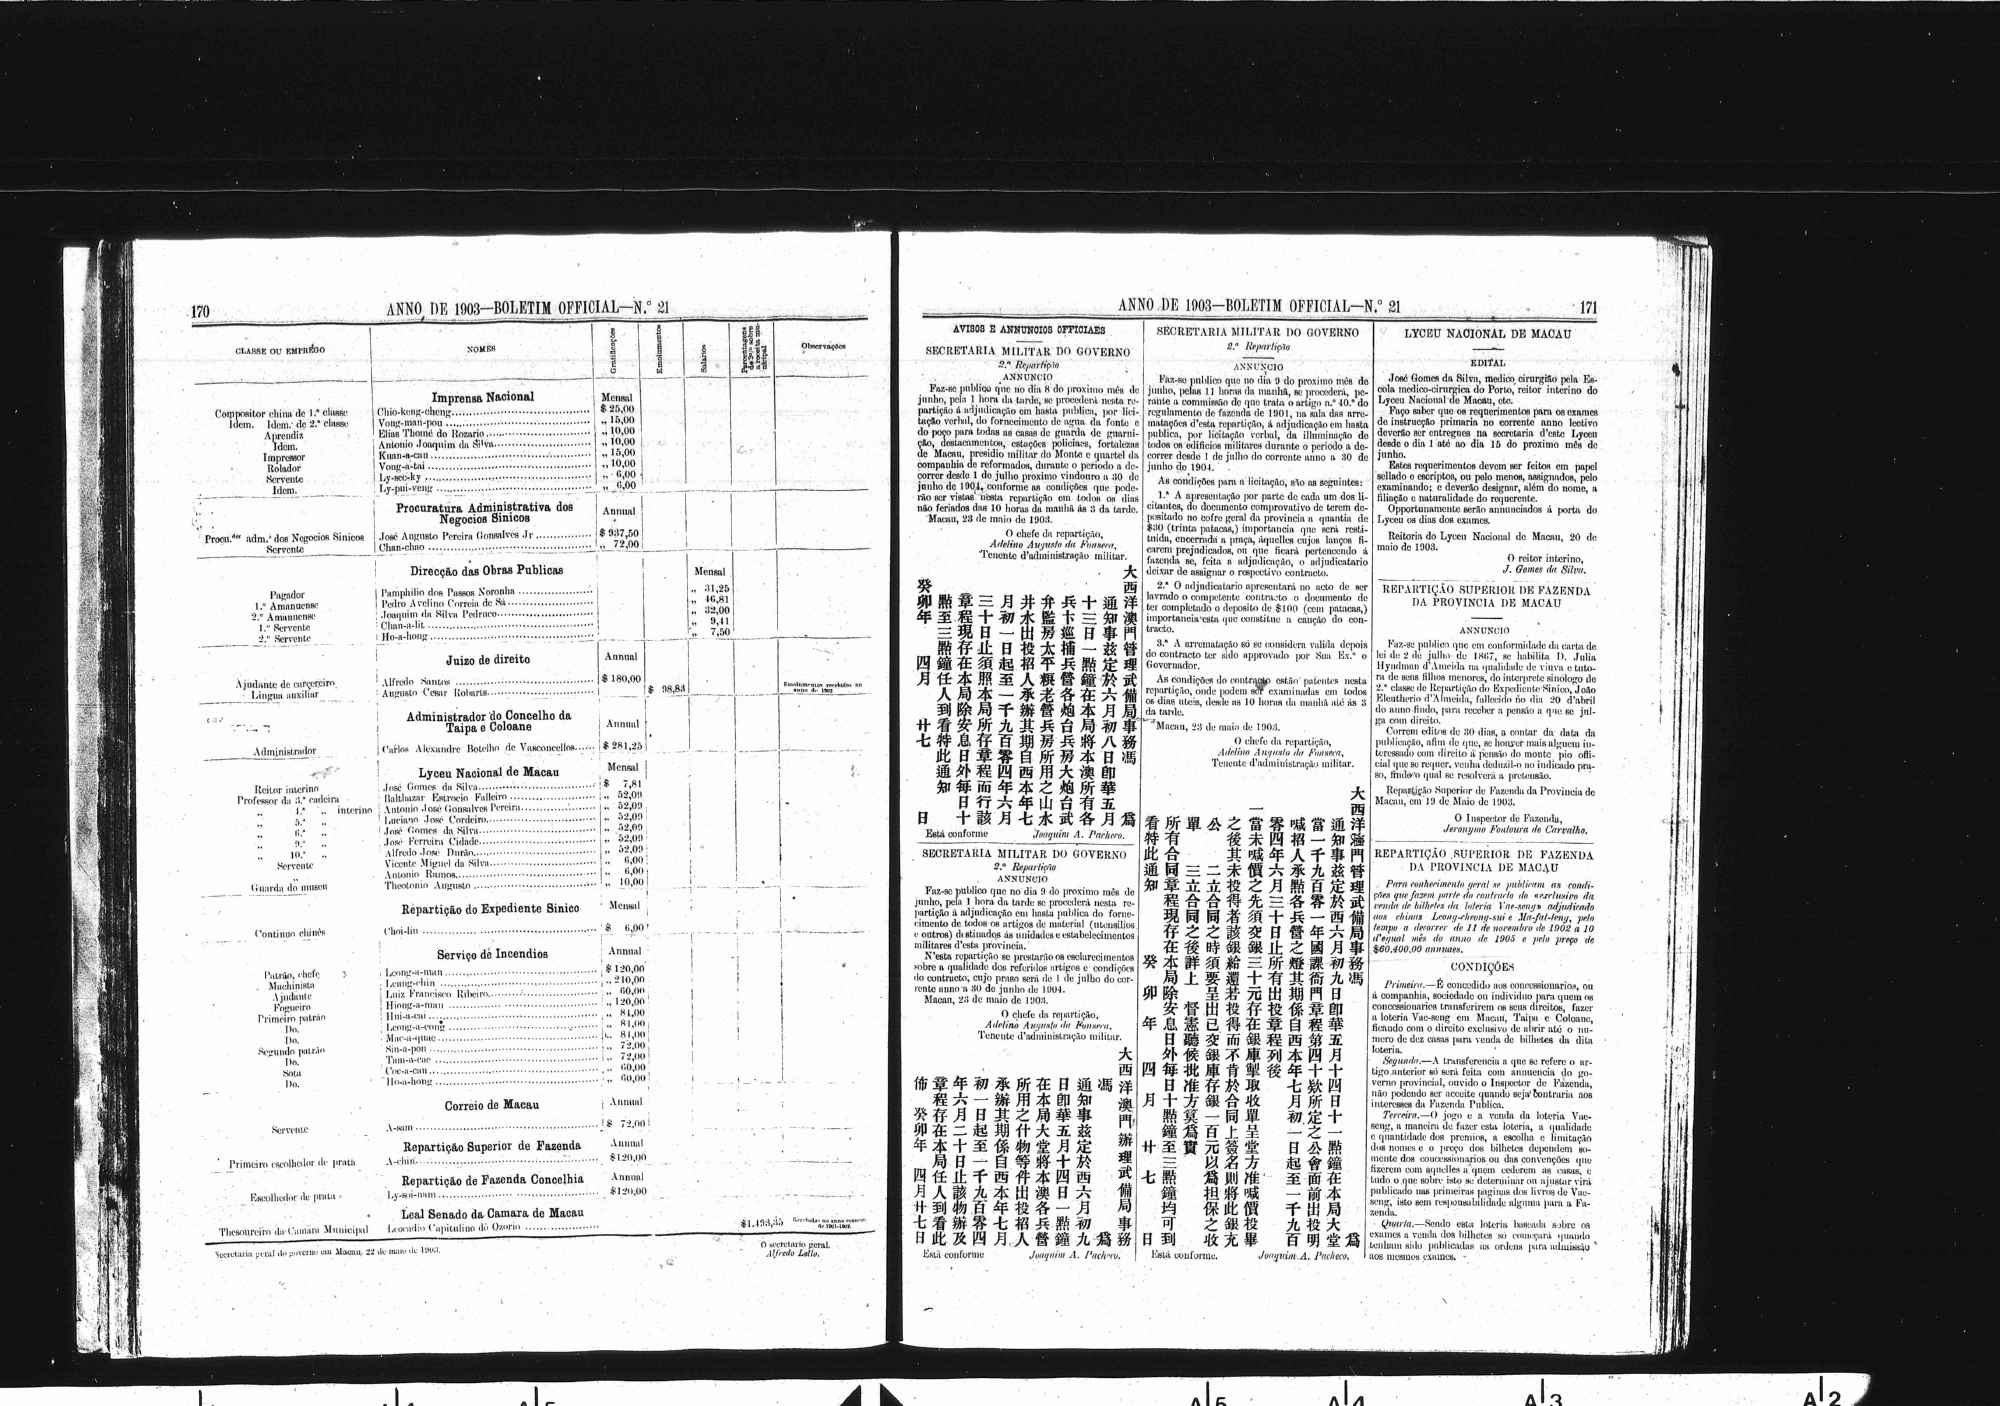 170
ANNO DE 1903—BOLETIM OFFICIAL—N.º 21
CLASSE OU EMPREGO NOMES Gratificações Emolumentos Salarios Observações
Imprensa Nacional Mensal
Compositor china de 1.ª classe Chio-keng-cheng $ 25,00
Idem. Idem. de 2.ª classe Vong-man-pou „ 15,00
Aprendiz Elias Thomé do Rozario „ 10,00
Idem. Antonio Joaquim da Silva „ 10,00
Impressor Kuan-a-cau „ 15,00
Rolador Vong-a-tai „ 10,00
Servente Ly-sec-ky „ 6,00
Idem. Ly-pui-veng „ 6,00
Procuratura Administrativa dos
Negocios Sinicos Annual
Procu.dor adm.º dos Negocios Sinicos José Augusto Pereira Gonsalves Jr $ 937,50
Servente Chan-chao „ 72,00
Direcção das Obras Publicas Mensal
Pagador Pamphilio dos Passos Noronha „ 31,25
1.º Amanuense Pedro Avelino Correia de Sá „ 46,81
2.º Amanuense Joaquim da Silva Pedruco „ 32,00
1.º Servente Chan-a-lit „ 9,41
2.º Servente Ho-a-hong „ 7,50
Juizo de direito Annual
Ajudante de carcereiro Alfredo Santos $ 180,00
Lingua auxiliar Augusto Cesar Robarts $ 98,83 Emolumentos recebidos no anno de 1902
Administrador do Concelho da
Taipa e Coloane Annual
Administrador Carlos Alexandre Botelho de Vasconcellos $ 281,25
Lyceu Nacional de Macau Mensal
Reitor interino José Gomes da Silva $ 7,81
Professor da 3.ª cadeira Balthazar Estrocio Falleiro „ 52,09
„ 4.ª „ interino Antonio José Gonsalves Pereira „ 52,09
„ 5.ª „ Luciano José Cordeiro „ 52,09
„ 6.ª „ José Gomes da Silva „ 52,09
„ 9.ª „ José Ferreira Cidade „ 52,09
„ 10.ª „ Alfredo José Durão „ 52,09
Servente Vicente Miguel da Silva „ 6,00
„ Antonio Ramos „ 6,00
Guarda do museu Theotonio Augusto „ 10,00
Repartição do Expediente Sinico Mensal
Continuo chinês Choi-lin $ 6,00
Serviço de Incendios Annual
Patrão, chefe Leong-a-man $ 120,00
Machinista Leung-chin „ 240,00
Ajudante Luiz Francisco Ribeiro „ 60,00
Fogueiro Hiong-a-man „ 120,00
Primeiro patrão Hui-a-cai „ 84,00
Do. Leong-a-cong „ 84,00
Do. Mac-a-quae „ 84,00
Segundo patrão Sin-a-pou „ 72,00
Do. Tam-a-cae „ 72,00
Sota Coc-a-can „ 60,00
Do. Ho-a-hong „ 60,00
Correio de Macau Annual
Servente A-sam $ 72,00
Repartição Superior de Fazenda Annual
Primeiro escolhedor de prata A-chin $120,00
Repartição de Fazenda Concelhia Annual
Escolhedor de prata Ly-soi-nam $120,00
Leal Senado da Camara de Macau
Thesoureiro da Camara Municipal Leocadio Capitulino do Ozorio $1.493,35
Secretaria geral do governo em Macau, 22 de maio de 1903.
O secretario geral,
Alfredo Lello.
ANNO DE 1903—BOLETIM OFFICIAL—N.º 21
171
AVISOS E ANNUNCIOS OFFICIAES
SECRETARIA MILITAR DO GOVERNO
2.ª Repartição
ANNUNCIO
Faz-se publico que no dia 8 do proximo mês de
junho, pela 1 hora da tarde, se procederá nesta re-
partição á adjudicação em hasta publica, por lici-
tação verbal, do fornecimento de agua da fonte e
do poço para todas as casas de guarda de guarni-
ção, destacamentos, estações policiaes, fortalezas
de Macau, presidio militar do Monte e quartel da
companhia de reformados, durante o periodo a de-
correr desde 1 de julho proximo vindouro a 30 de
junho de 1904, conforme as condições que pode-
rão ser vistas nesta repartição em todos os dias
não feriados das 10 horas da manhã ás 3 da tarde.
Macau, 23 de maio de 1903.
O chefe da repartição,
Adelino Augusto da Fonseca,
Tenente d'administração militar.
大西洋澳門管理武備局事務馮 爲
通知事茲定於六月初八日卽華五月
十三日一點鐘在本局將本澳所有各
兵卡巡捕兵營各炮台兵房大炮台武
弁監房太平糧老營兵房所用之山水
井水出投招人承辦其期自西本年七
月初一日起至一千九百零四年六月
三十日止須照本局所存章程而行該
章程現存在本局除安息日外每日十
點至三點鐘任人到看特此通知
癸卯年 四月 廿七 日
Está conforme Joaquim A. Pacheco.
SECRETARIA MILITAR DO GOVERNO
2.ª Repartição
ANNUNCIO
Faz-se publico que no dia 9 do proximo mês de
junho, pela 1 hora da tarde se procederá nesta re-
partição á adjudicação em hasta publica do forne-
cimento de todos os artigos de material (utensilios
e outros) destinados ás unidades e estabelecimentos
militares d'esta provincia.
N'esta repartição se prestarão os esclarecimentos
sobre a qualidade dos referidos artigos e condições
do contracto, cujo praso será de 1 de julho do cor-
rente anno a 30 de junho de 1904.
Macau, 23 de maio de 1903.
O chefe da repartição,
Adelino Augusto da Fonseca,
Tenente d'administração militar.
大西洋澳門辦理武備局事務
馮 爲
通知事茲定於西六月初九
日卽華五月十四日一點鐘
在本局大堂將本澳各兵營
所用之什物等件出投招人
承辦其期係自西本年七月
初一日起至一千九百零四
年六月二十日止該物辦及
章程存在本局任人到看此
佈 癸卯年 四月廿七日
Está conforme Joaquim A. Pacheco.
SECRETARIA MILITAR DO GOVERNO
2.ª Repartição
ANNUNCIO
Faz-se publico que no dia 9 do proximo mês de
junho, pelas 11 horas da manhã, se procederá, pe-
rante a commissão de que trata o artigo n.º 40.º do
regulamento de fazenda de 1901, na sala das arre-
matações d'esta repartição, á adjudicação em hasta
publica, por licitação verbal, da illuminação de
todos os edificios militares durante o periodo a de-
correr desde 1 de julho do corrente anno a 30 de
junho de 1904.
As condições para a licitação, são as seguintes:
1.ª A apresentação por parte de cada um dos li-
citantes, do documento comprovativo de terem de-
positado no cofre geral da provincia a quantia de
$30 (trinta patacas,) importancia que será resti-
tuida, encerrada a praça, áquelles cujos lanços fi-
carem prejudicados, ou que ficará pertencendo á
fazenda se, feita a adjudicação, o adjudicatario
deixar de assignar o respectivo contracto.
2.ª O adjudicatario apresentará no acto de ser
lavrado o competente contracto o documento de
ter completado o deposito de $100 (cem patacas,)
importancia esta que constitue a caução do con-
tracto.
3.ª A arrematação só se considera valida depois
do contracto ter sido approvado por Sua Ex.ª o
Governador.
As condições do contracto estão patentes nesta
repartição, onde podem ser examinadas em todos
os dias uteis, desde as 10 horas da manhã até ás 3
da tarde.
Macau, 23 de maio de 1903.
O chefe da repartição,
Adelino Augusto da Fonseca,
Tenente d'administração militar.
大西洋澳門管理武備局事務馮 爲
通知事茲定於西六月初九日卽華五月十四日十一點鐘在本局大堂
當一千九百零一年國課衙門章程第四十欵所定之公會面前出投明
喊招人承點各兵營之燈其期係自西本年七月初一日起至一千九百
零四年六月三十日止所有出投章程列後
一當未喊價之先須交銀三十元存在銀庫掣取收單呈堂方准喊價投畢
之後其未投得者該銀給還若投得而不肯於合同上簽名則將此銀充
公 二立合同之時須要呈出已交銀庫存銀一百元以爲担保之收
單 三立合同之後詳上 督憲聽候批准方算爲實
所有合同章程現存在本局除安息日外每日十點鐘至三點鐘均可到
看特此通知 癸卯年 四月 廿七 日
Está conforme. Joaquim A. Pacheco.
LYCEU NACIONAL DE MACAU
EDITAL
José Gomes da Silva, medico cirurgião pela Es-
cola medico-cirurgica do Porto, reitor interino do
Lyceu Nacional de Macau, etc.
Faço saber que os requerimentos para os exames
de instrucção primaria no corrente anno lectivo
deverão ser entregues na secretaria d'este Lyceu
desde o dia 1 até ao dia 15 do proximo mês de
junho.
Estes requerimentos devem ser feitos em papel
sellado e escriptos, ou pelo menos, assignados, pelo
examinando; e deverão designar, além do nome, a
filiação e naturalidade do requerente.
Opportunamente serão annunciados á porta do
Lyceu os dias dos exames.
Reitoria do Lyceu Nacional de Macau, 20 de
maio de 1903.
O reitor interino,
J. Gomes da Silva.
REPARTIÇÃO SUPERIOR DE FAZENDA
DA PROVINCIA DE MACAU
ANNUNCIO
Faz-se publico que em conformidade da carta de
lei de 2 de julho de 1867, se habilita D. Julia
Hyndman d'Almeida na qualidade de viuva e tuto-
ra de seus filhos menores, do interprete sinologo de
2.ª classe de Repartição do Expediente Sinico, João
Eleutherio d'Almeida, fallecido no dia 20 d'abril
do anno findo, para receber a pensão a que se jul-
ga com direito.
Correm editos de 30 dias, a contar da data da
publicação, afim de que, se houver mais alguem in-
teressado com direito á pensão do monte pio offi-
cial que se requer, venha deduzil-o no indicado pra-
so, findo o qual se resolverá a pretensão.
Repartição Superior de Fazenda da Provincia de
Macau, em 19 de Maio de 1903.
O Inspector de Fazenda,
Jeronymo Fontoura de Carvalho.
REPARTIÇÃO SUPERIOR DE FAZENDA
DA PROVINCIA DE MACAU
Para conhecimento geral se publicam as condi-
ções que fazem parte do contracto do «exclusivo da
venda de bilhetes da loteria Vae-seng» adjudicado
aos chinas Leong-cheong-sui e Ma-fat-teng, pelo
tempo a decorrer de 11 de novembro de 1902 a 10
d'egual mês do anno de 1905 e pelo preço de
$60,400.00 annuaes.
CONDIÇÕES
Primeira.—É concedido aos concessionarios, ou
á companhia, sociedade ou individuo para quem os
concessionarios transferirem os seus direitos, fazer
a loteria Vae-seng em Macau, Taipa e Coloane,
ficando com o direito exclusivo de abrir até o nu-
mero de dez casas para venda de bilhetes da dita
loteria.
Segunda.—A transferencia a que se refere o ar-
tigo anterior só será feita com annuencia do go-
verno provincial, ouvido o Inspector de Fazenda,
não podendo ser aceite quando seja contraria aos
interesses da Fazenda Publica.
Terceira.—O jogo e a venda da loteria Vae-
seng, a maneira de fazer esta loteria, a qualidade
e quantidade dos premios, a escolha e limitação
dos nomes e o preço dos bilhetes dependem so-
mente dos concessionarios ou das convenções que
fizerem com aquelles a quem cederem as casas, e
tudo o que sobre isto se determinar ou ajustar virá
publicado nas primeiras paginas dos livros de Vae-
seng, isto sem responsabilidade alguma para a Fa-
zenda.
Quarta.—Sendo esta loteria baseada sobre os
exames a venda dos bilhetes só começará quando
tenham sido publicadas as ordens para admissão
aos mesmos exames.
A 5
A 4
A 3
A 2